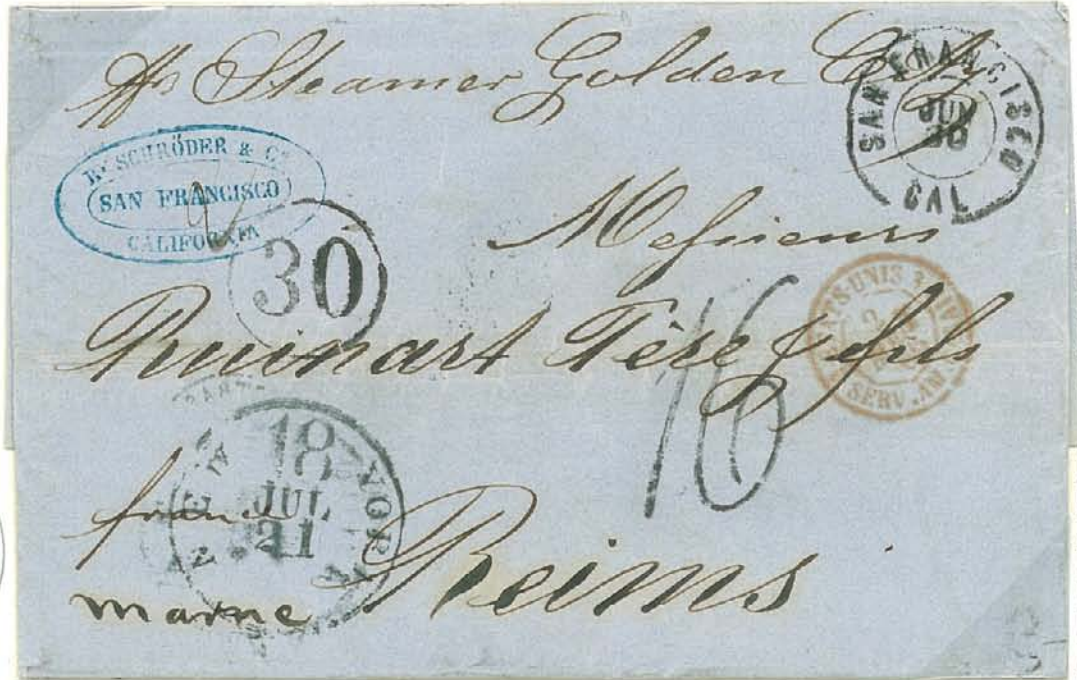 Steamer Golden City
SAN FRANCISCO
JUN
30
CAL
SCHRÖDER & Co
SAN FRANCISCO
CALIFORNIA
30
Messieurs
Ruinart Père & fils
16
ETATS-UNIS
SERV. AM.
18
JUL
21
NEW YORK
france
Reims
marne